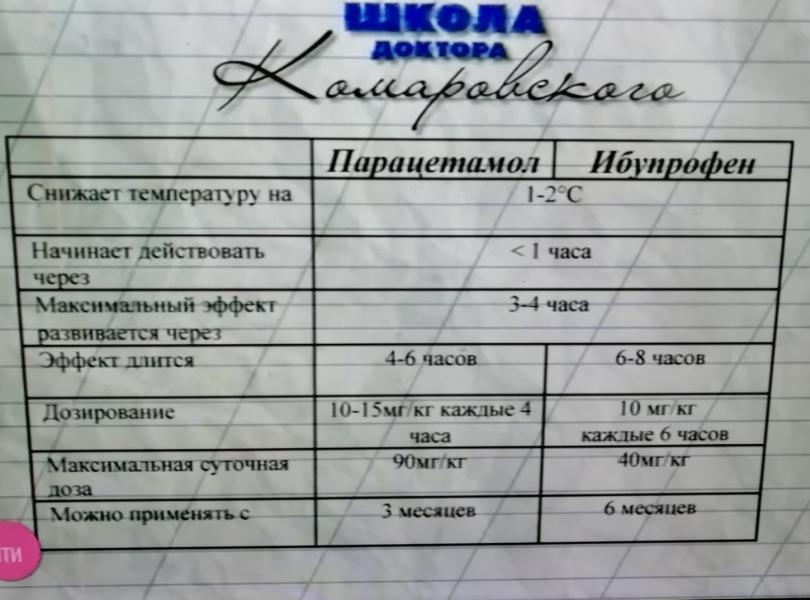 ШКОЛА
ДОКТОРА
Комаровского
Парацетамол Ибупрофен
Снижает температуру на 1-2°C
Начинает действовать < 1 часа
через
Максимальный эффект 3-4 часа
развивается через
Эффект длится 4-6 часов 6-8 часов
Дозирование 10-15мг/кг каждые 4 10 мг/кг
часа каждые 6 часов
Максимальная суточная 90мг/кг 40мг/кг
доза
Можно применять с 3 месяцев 6 месяцев
ТИ